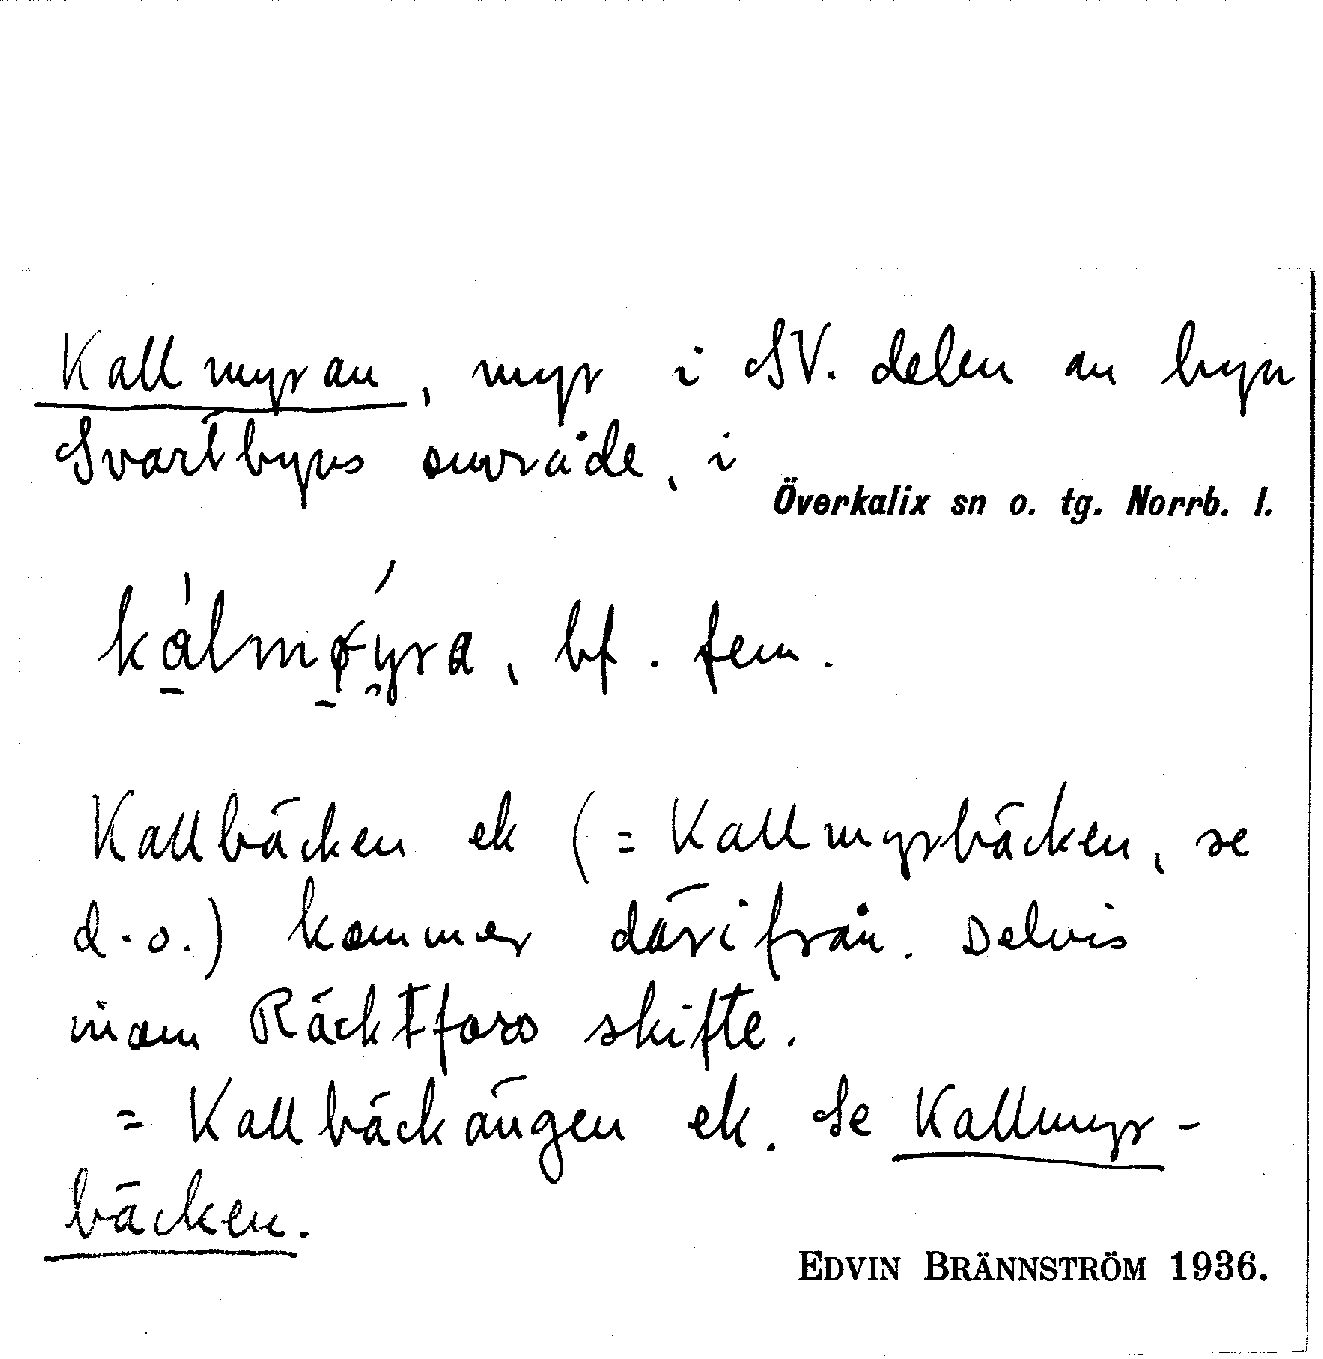 Kallmyran, myr i SV. delen av byn
Svartbyns område, i
Överkalix sn o. tg. Norrb. l.
kálmøýra, bf. fem.
Kallbäcken ek (= Kallmyrbäcken, se
d.o.) kommer därifrån. Delvis
inom Räcktfors skifte.
= Kallbäckängen ek. Se Kallmyr-
bäcken.
EDVIN BRÄNNSTRÖM 1936.